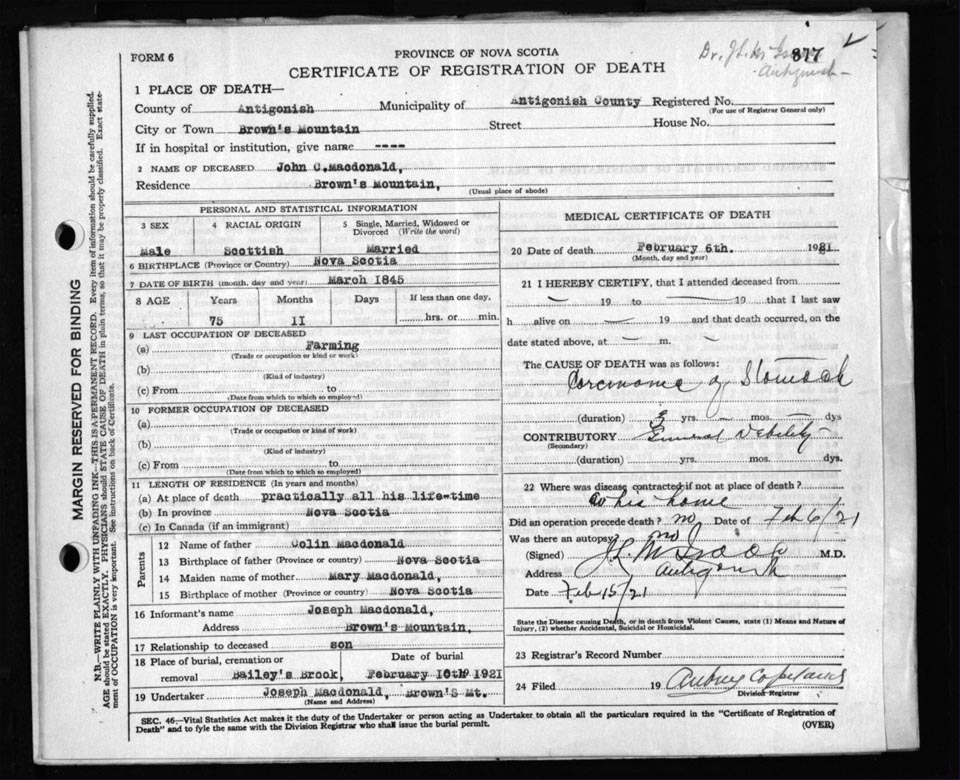 FORM 6
PROVINCE OF NOVA SCOTIA
CERTIFICATE OF REGISTRATION OF DEATH
Dr.
877
Antigonish
1 PLACE OF DEATH—
County of Antigonish Municipality of Antigonish County Registered No.
(For use of Registrar General only)
City or Town Brown's Mountain Street House No.
If in hospital or institution, give name ----
2 NAME OF DECEASED John C.Macdonald,
Residence Brown's Mountain,
(Usual place of abode)
PERSONAL AND STATISTICAL INFORMATION
3 SEX 4 RACIAL ORIGIN 5 Single, Married, Widowed or Divorced (Write the word)
Male Scottish Married
6 BIRTHPLACE (Province or Country) Nova Scotia
7 DATE OF BIRTH (month, day and year) March 1845
8 AGE Years Months Days If less than one day,
75 II hrs. or min.
9 LAST OCCUPATION OF DECEASED
(a) Farming
(Trade or occupation or kind or work)
(b)
(Kind of industry)
(c) From to
(Date from which to which so employed)
10 FORMER OCCUPATION OF DECEASED
(a)
(Trade or occupation or kind of work)
(b)
(Kind of industry)
(c) From to
(Date from which to which so employed)
11 LENGTH OF RESIDENCE (In years and months)
(a) At place of death practically all his life-time
(b) In province Nova Scotia
(c) In Canada (if an immigrant)
Parents
12 Name of father Colin Macdonald
13 Birthplace of father (Province or country) Nova Scotia
14 Maiden name of mother Mary Macdonald,
15 Birthplace of mother (Province or country) Nova Scotia
16 Informant's name Joseph Macdonald,
Address Brown's Mountain,
17 Relationship to deceased son
18 Place of burial, cremation or removal Date of burial
Bailey's Brook, February 10th 1921
19 Undertaker Joseph Macdonald, Brown's Mt.
(Name and Address)
MEDICAL CERTIFICATE OF DEATH
20 Date of death February 6th. 1921.
(Month, day and year)
21 I HEREBY CERTIFY, that I attended deceased from
19 to 19 that I last saw
h alive on 19 and that death occurred, on the
date stated above, at m.
The CAUSE OF DEATH was as follows:
Carcinoma of Stomach
(duration) 3 yrs. mos. dys
CONTRIBUTORY General Debility
(Secondary)
(duration) yrs. mos. dys.
22 Where was disease contracted if not at place of death?
At his home
Did an operation precede death? no Date of Feb 6/21
Was there an autopsy no
(Signed) M.D.
Address Antigonish
Date Feb 15/21
State the Disease causing Death, or in death from Violent Causes, state (1) Means and Nature of
Injury, (2) whether Accidental, Suicidal or Homicidal.
23 Registrar's Record Number
24 Filed 19
Division Registrar
SEC. 46.—Vital Statistics Act makes it the duty of the Undertaker or person acting as Undertaker to obtain all the particulars required in the "Certificate of Registration of
Death" and to fyle the same with the Division Registrar who shall issue the burial permit.
(OVER)
MARGIN RESERVED FOR BINDING
N.B.—WRITE PLAINLY WITH UNFADING INK—THIS IS A PERMANENT RECORD. Every item of information should be carefully supplied.
AGE should be stated EXACTLY. PHYSICIANS should STATE CAUSE OF DEATH in plain terms, so that it may be properly classified. Exact state-
ment of OCCUPATION is very important. See instructions on back of Certificate.